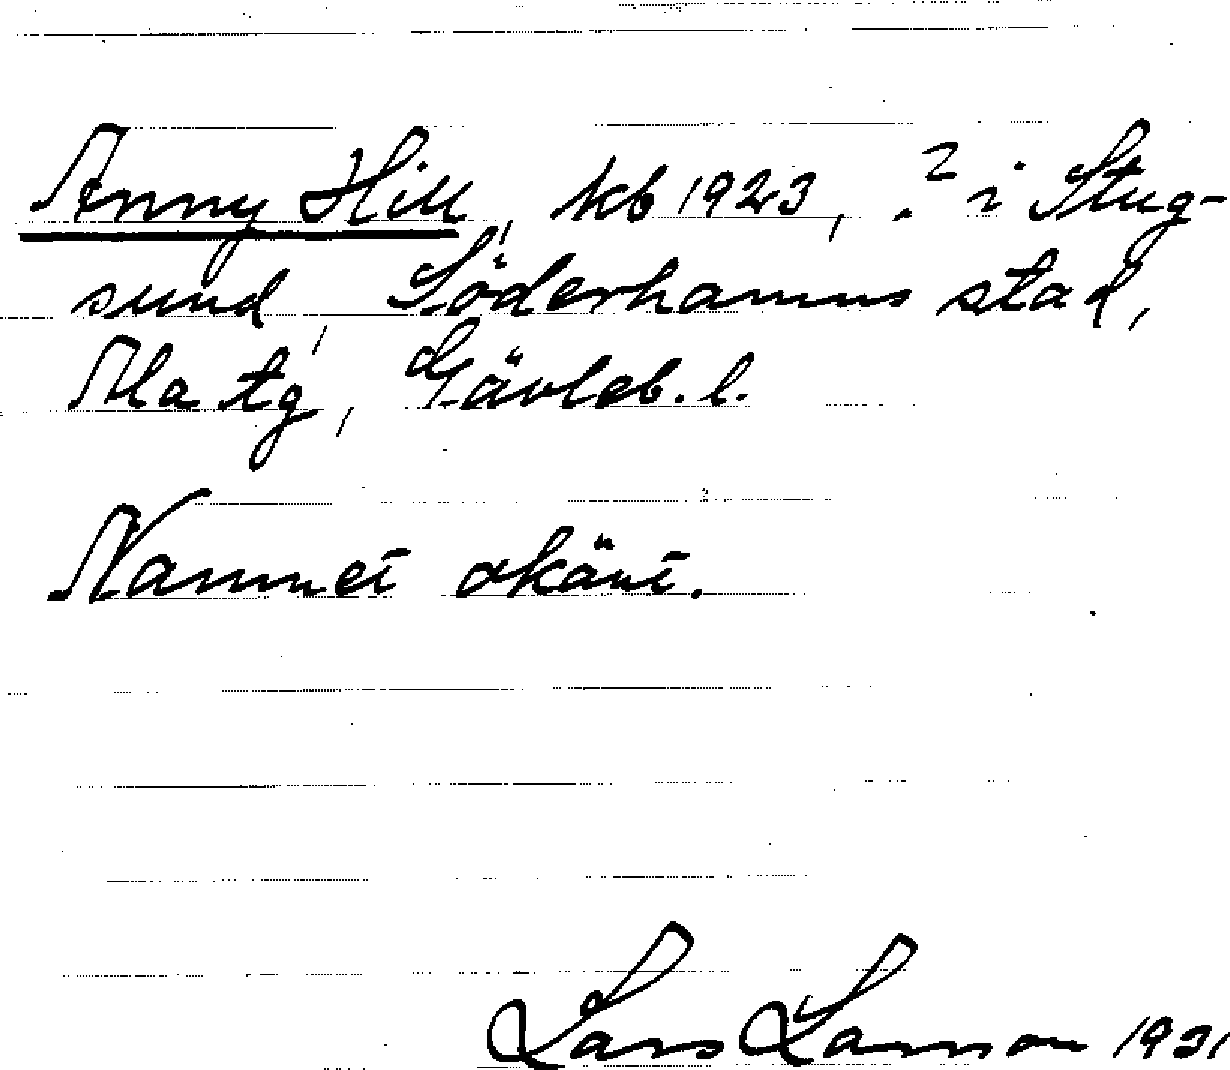 Anny Hill, kb 1923, ? i Stug-
sund, Söderhamns stad,
Ala tg, Gävleb. l.
Namnet okänt.
Lars Larsson 1931